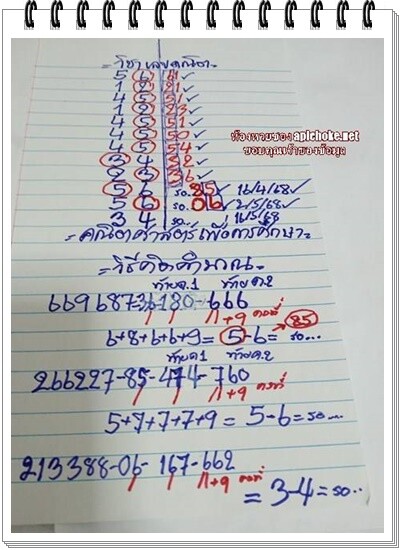 วิชาเลขคณิต
5 6 11 ✓
1 2 21 ✓
4 5 51 ✓
1 2 23 ✓
4 5 51 ✓
4 5 50 ✓
4 5 54 ✓
3 4 32 ✓
2 3 36 ✓
5 6 รอ. 85 ✓ 16/4/68 ✓
5 6 รอ. 06 ✓ 2/5/68 ✓
3 4 รอ... 16/5/68
ห้องหวยซอง aplchoke.net
ขอบคุณเจ้าของข้อมูล
= คณิตศาสตร์เพื่อการศึกษา =
= วิธีคิดคำนวณ =
ท้าย ด.1 ท้าย ด.2
669687-36-180-666
+9 คงที่
6+8+6+6+9 = 5-6 = รอ... 85
ท้าย ด.1 ท้าย ด.2
266227-85-474-760
+9 คงที่
5+7+7+7+9 = 5-6 = รอ...
213388-06-167-662
+9 คงที่
= 3-4 = รอ..